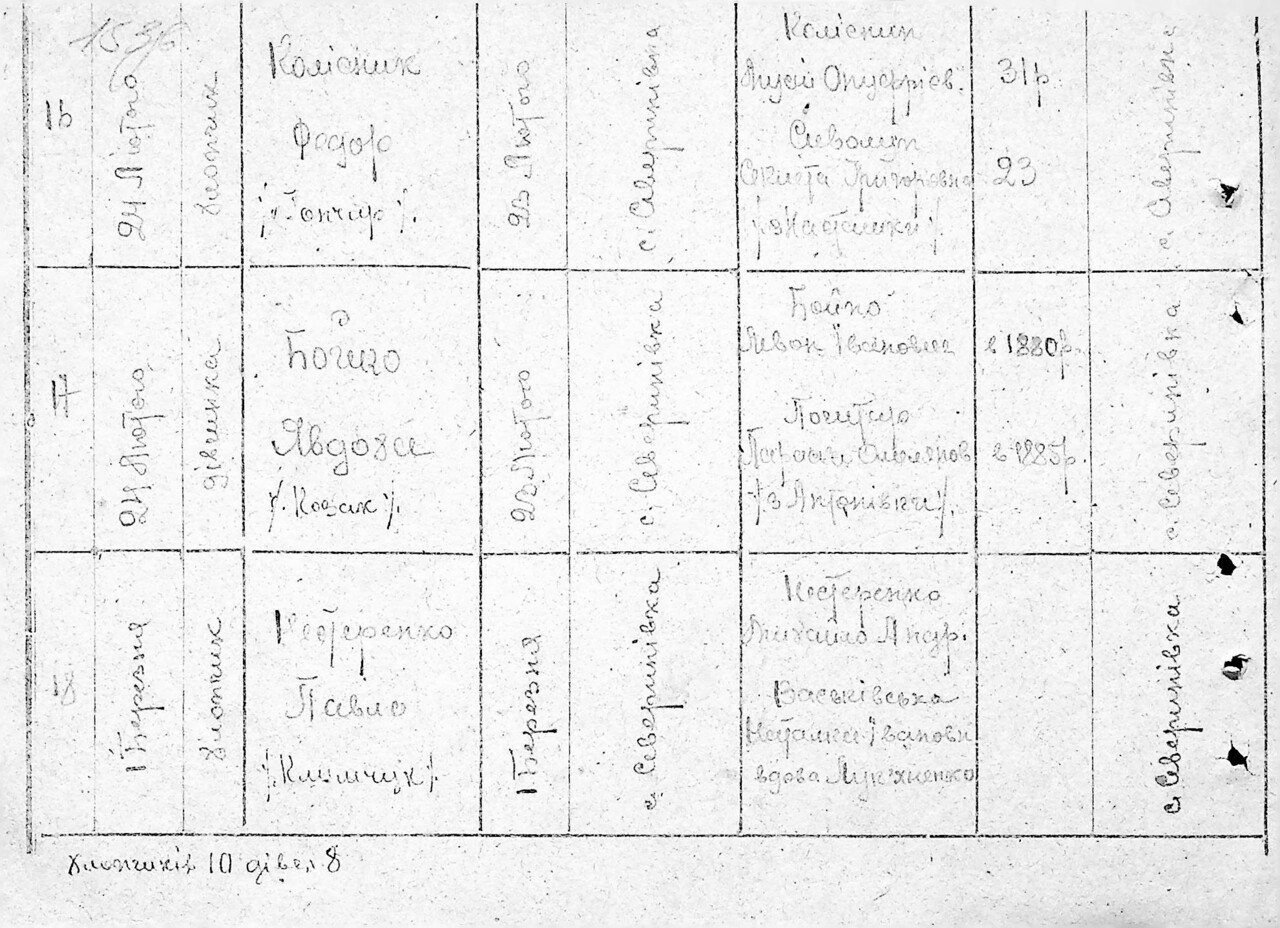 1536
16
24 Лютого
хлопчик
Колісник
Федор
/Гончар/.
23 Лютого
с. Северинівка
Колісник
Онуфріев.
Григоровна
/з Насташки/
31р
23
с. Северинівка
17
24 Лютого
дівчинка
Бойко
Явдоха
/.Козак/.
23 Лютого
с. Северинівка
Бойко
Левон Іванович
Параска Омелянов
/з Антонівки/.
в 1880р.
в 1885р.
с. Северинівка
18
1 Березня
хлопчик
Нестеренко
Павло
/Климчук/.
1 Березня
с. Северинівка
Нестеренко
Михайло Андр.
Васьківська
Наталка Івановн
вдова Лукяненко
с. Северинівка
Хлопчиків 10 дівч. 8